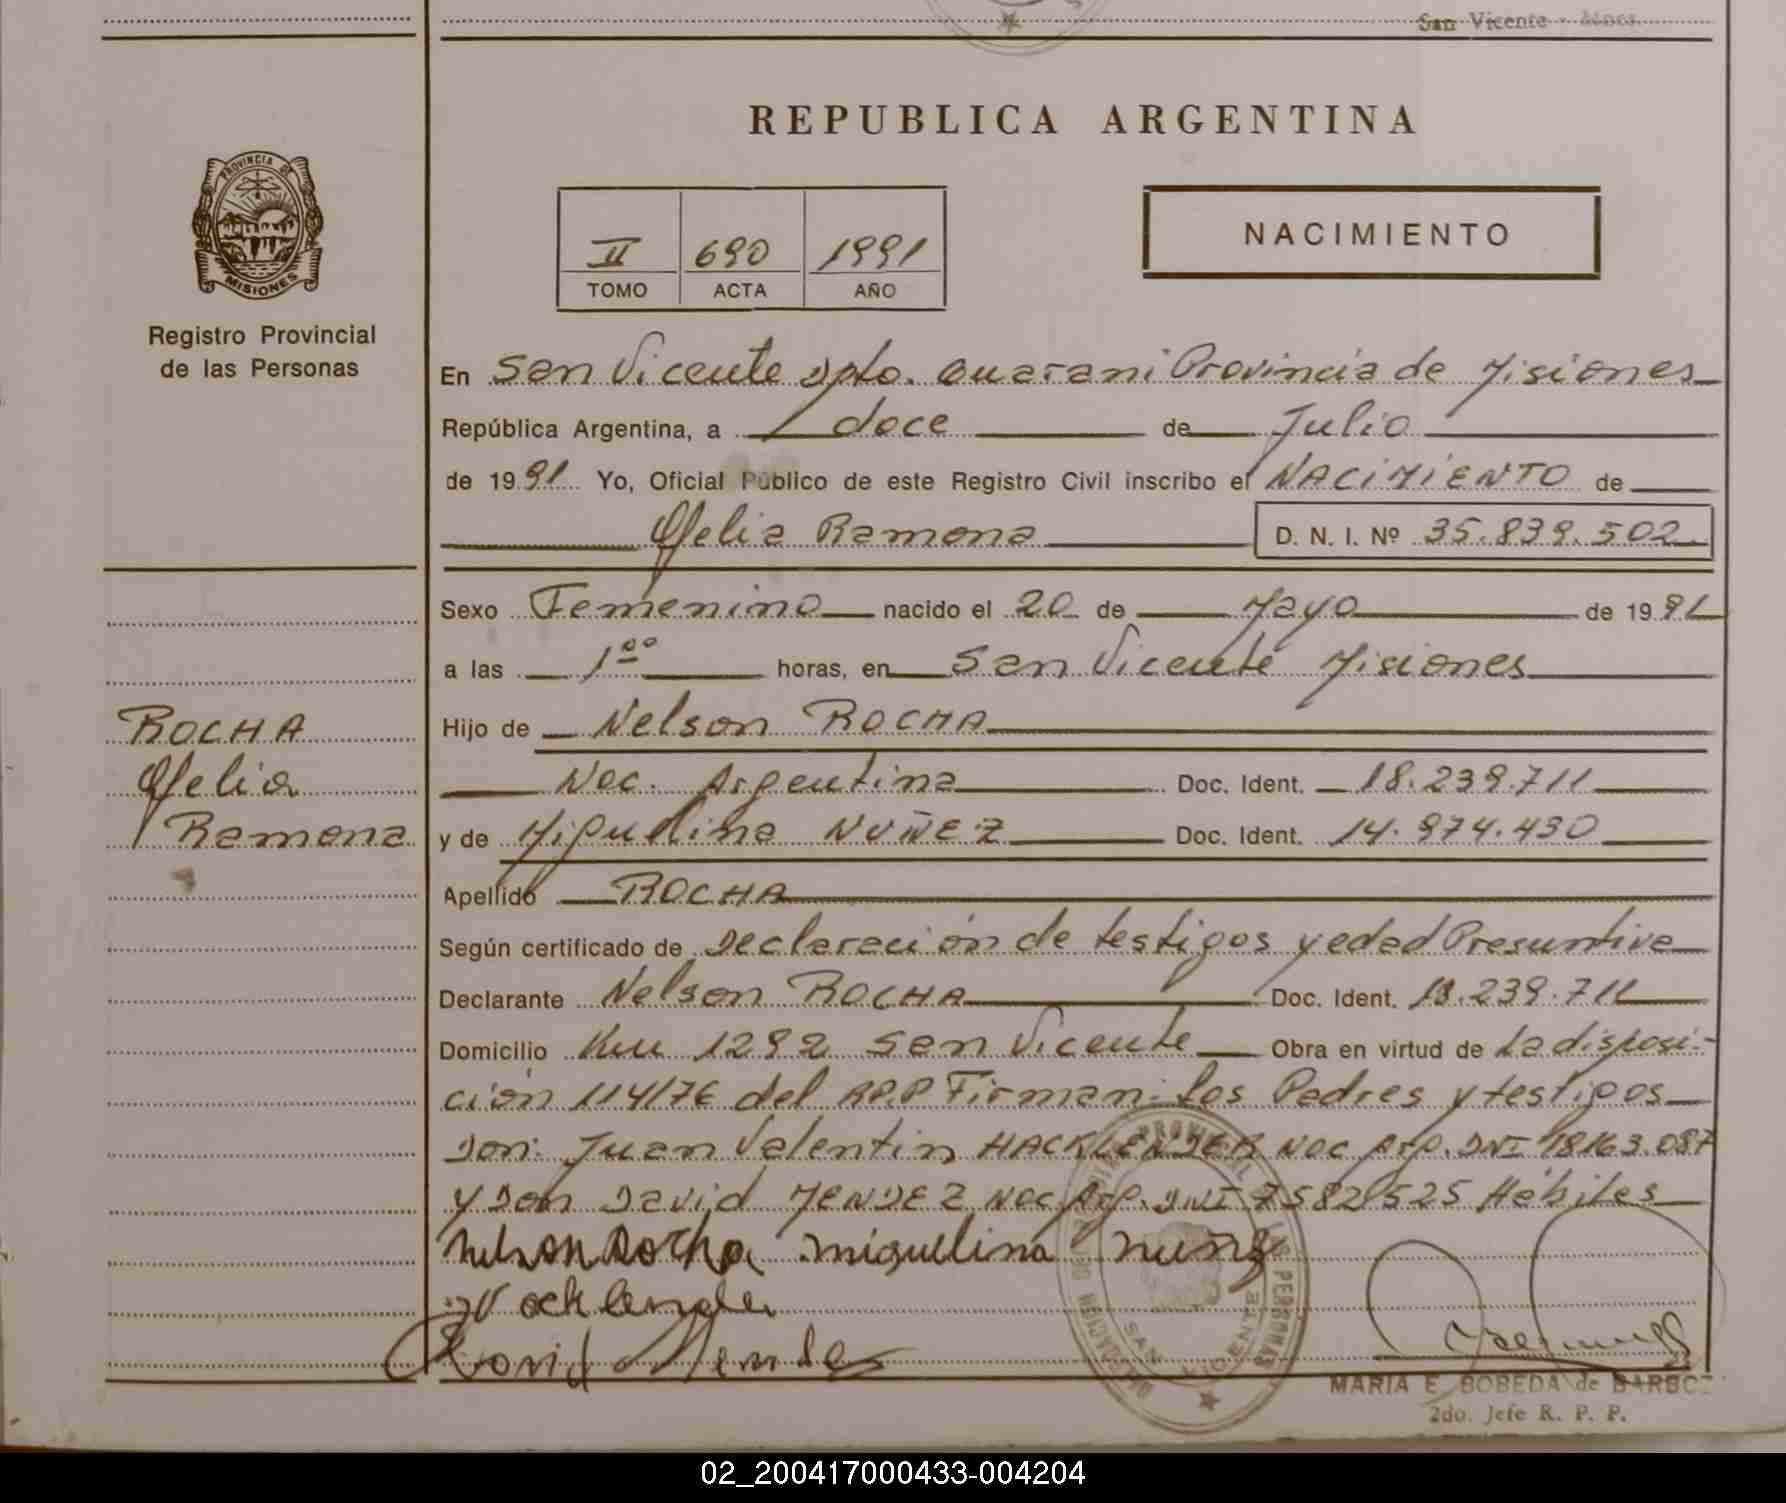 San Vicente - Mnes.
REPUBLICA ARGENTINA
PROVINCIA DE
MISIONES
Registro Provincial
de las Personas
II 690 1991
TOMO ACTA AÑO
NACIMIENTO
En San Vicente Dpto. Guarani Provincia de Misiones
República Argentina, a doce de Julio
de 1991 Yo, Oficial Público de este Registro Civil inscribo el NACIMIENTO de
Ofelia Ramona D. N. I. Nº 35.839.502
Sexo Femenino nacido el 20 de Mayo de 1991
a las 1°° horas, en San Vicente Misiones
ROCHA
Ofelia
Ramona
Hijo de Nelson ROCHA
Nac. Argentina Doc. Ident. 18.239.711
y de Miguelina NUÑEZ Doc. Ident. 14.974.490
Apellido ROCHA
Según certificado de Declaración de testigos y edad Presuntiva
Declarante Nelson ROCHA Doc. Ident. 18.239.711
Domicilio Km 1292 San Vicente Obra en virtud de La disposi-
ción 114/76 del RP.P Firman: Los Padres y testigos
Don: Juan Valentin HACKLENDER NAC Arg. DNI 18163.087
y Don David MENDEZ NAC Arg. DNI 7582525 Hábiles
Nelson Rocha Miguelina Nuñez
JV acklender
David Mendes
SAN VICENTE
MARIA E. BOBEDA de BARBOZ
2do. Jefe R. P. P.
02_200417000433-004204